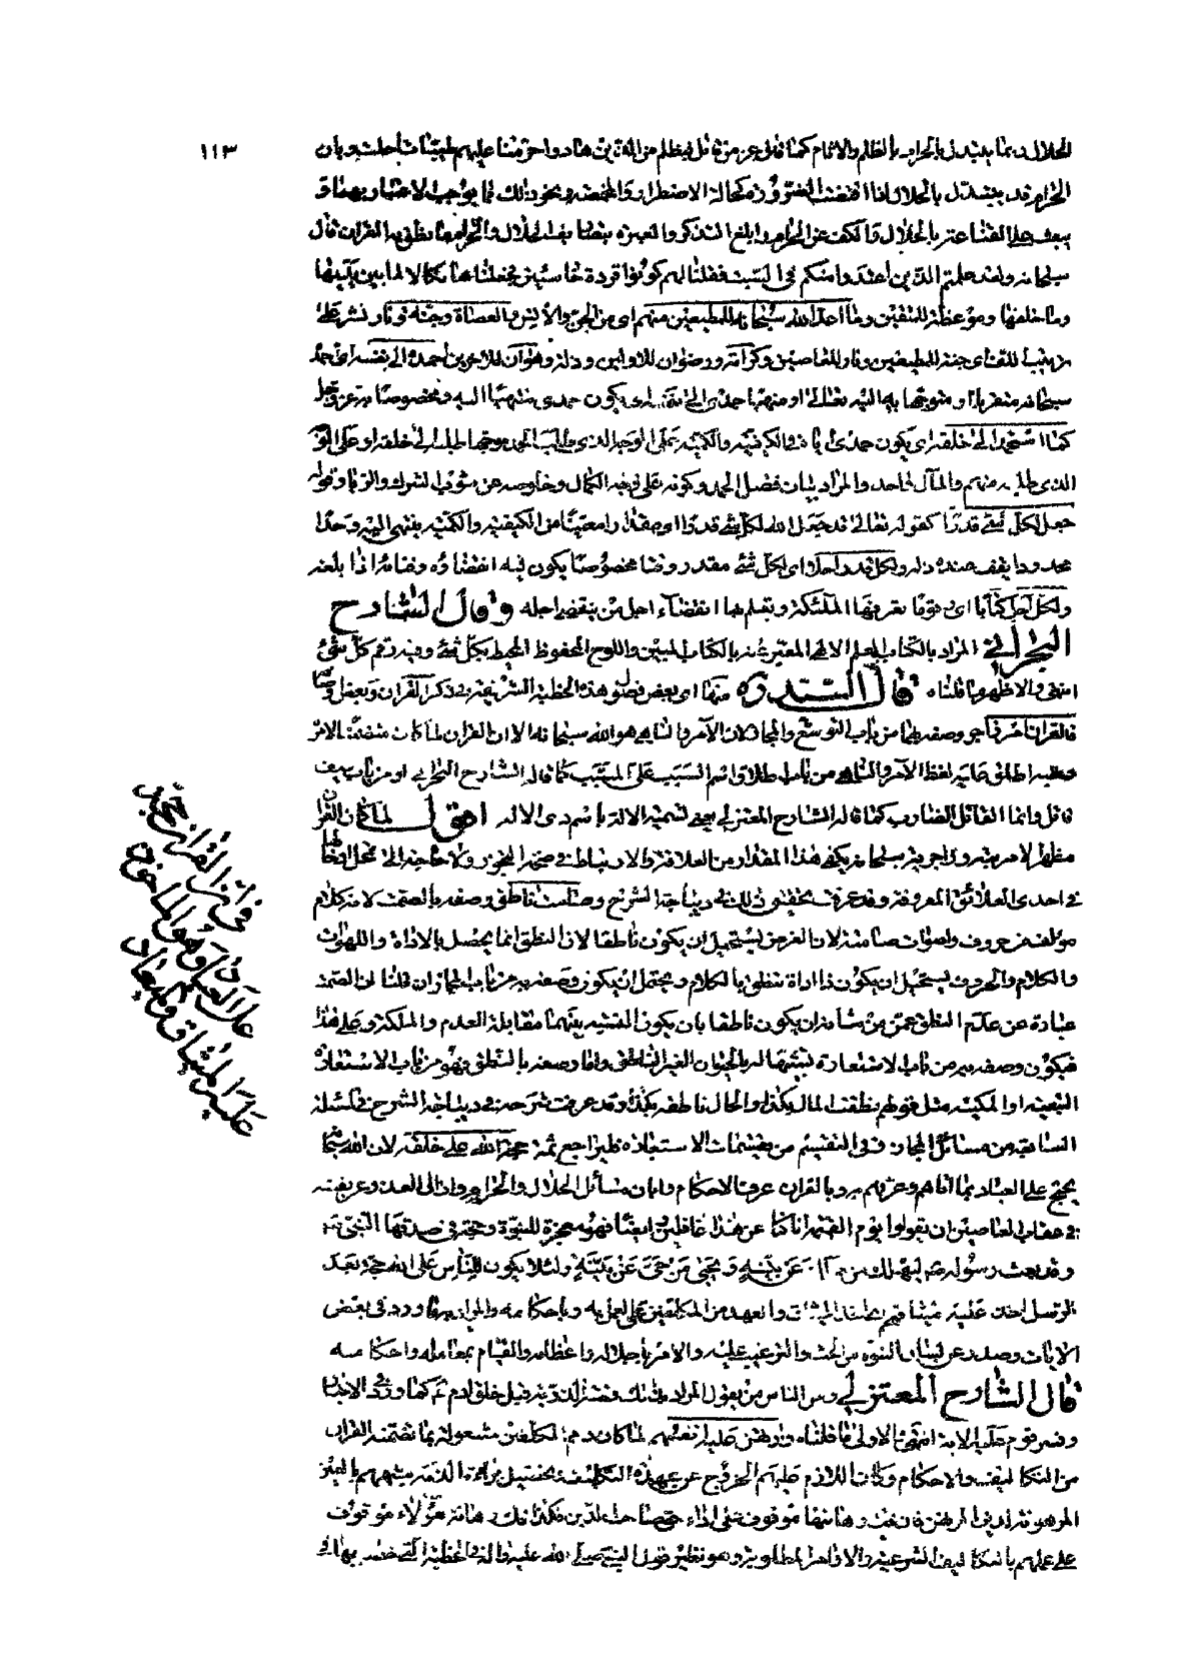 ١١٣
الحلال ربما يتبدل بالحرام بالظلم والاثام كما قال عز من قائل فبظلم من الذين هادوا حرمنا عليهم طيبات احلت وبان
الحرام قد يتبدل بالحلال اذا اقتضت الضرورة كحالة الاضطرار والمخمصة ونحو ذلك مما يوجب الاعتبار بهما
يبعث على القناعة بالحلال والكف عن الحرام وابلغ التذكر والعبرة بقضايا الحلال والحرام ما نطق به القران قال
سبحانه ولقد علمتم الذين اعتدوا منكم في السبت فقلنا لهم كونوا قردة خاسئين فجعلناها نكالا لما بين يديها
وما خلفها وموعظة للمتقين وما اعد الله سبحانه للمطيعين منهم اى من الجن والانس والعصاة وجنة ونار نشر على
اى جنة للمطيعين ونار للعاصين وكرامة ورضوان للاولين وذلة وهوان للاخرين احمده الى نفسه اى احمده
سبحانه متقربا او متوجها به اليه تعالى او منهيا حمدى الى نفسه اى يكون حمدى منتهيا اليه ومخصوصا به عز وجل
كما استحمد الى خلقه اى يكون حمدى اياه في الكيفية والكمية على الوجه الذى طلب الحمد موجها الى خلقه او على الوجه
الذى طلبه منهم والمآل واحد والمراد بيان فضل الحمد وكونه على وجه الكمال وخلوصه عن شوب الشرك والريا وقوله
جعل لكل شئ قدرا كقوله تعالى قد جعل الله لكل شئ قدرا اى مقدارا معينا من الكيفية والكمية ينتهى اليه وحدا
محدودا يقف عنده ولكل قدر اجلا اى لكل شئ مقدر وقتا مخصوصا يكون فيه انقضاؤه وفناؤه اذا بلغه
ولكل اجل كتابا اى رقوما تعرفها الملئكة وتعلم بها انقضاء اجل من ينقضى اجله وقال الشارح
البحرانى المراد بالكتاب العلم الالهى المعبر عنه بالكتاب المبين واللوح المحفوظ المحيط بكل شئ وفيه رقم كل شئ
انتهى والاظهر ما قلناه قال السيد ره منها اى بعض فصول هذه الخطبة الشريفة في ذكر القران وبعض
فالقران امر زاجر وصفه بهما من باب التوسع والمجاز لان الآمر والناهى هو الله سبحانه الا ان القران لما كان متضمنا للامر
والنهى اطلق عليه لفظ الآمر والناهى من باب اطلاق اسم السبب على المسبب كما قاله الشارح البحرانى او من باب سيف
قاتل وانما القاتل الضارب كما قاله الشارح المعتزلى يعنى تسمية الالة باسم ذى الالة اقول لما كان القران
مظهرا لامريته وزاجريته سبحانه يكفى هذا المقدار من العلاقة والارتباط في صحة التجوز ولا حاجة الى تمحل ادخالها
في احدى العلائق المعروفة وقد عرفت تحقيق ذلك في ديباجة الشرح وصامت ناطق وصفه بالصمت لانه كلام
مؤلف من حروف واصوات صامتة لان العرض يستحيل ان يكون ناطقا لان النطق انما يحصل بالاداة واللهوات
والكلام والحروف يستحيل ان يكون ذا اداة تنطق بالكلام ويحتمل ان يكون وصفه به من باب المجاز ان قلنا ان الصمت
عبارة عن عدم النطق عمن من شانه ان يكون ناطقا بان يكون النسبة بينهما مقابلة العدم والملكة وعلى هذا
فيكون وصفه به من باب الاستعارة تشبيها له بالحيوان الغير الناطق واما وصفه بالنطق فهو من باب الاستعارة
التبعية او المكنية مثل قولهم نطقت الحال بكذا والحال ناطقة بكذا وقد عرفت شرحه في ديباجة الشرح في المسئلة
السابعة من مسائل المجاز في التقسيم من تقسيمات الاستعارة فليراجع ثمة حجة الله على خلقه لان الله سبحانه
يحتج على العباد بما اتاهم وعرفهم به وبالقران عرف الاحكام وابان مسائل الحلال والحرام
في عقاب العاصين ان يقولوا يوم القيمة انا كنا عن هذا غافلين ايضا فهو معجزة للنبوة وحجة في صدقها
وقد بعث رسوله ليهلك من هلك عن بينة ويحيى من حى عن بينة ولئلا يكون للناس على الله حجة بعد
الرسل اخذ عليه ميثاقهم والعهد من المكلفين على العمل به وباحكامه والمراد به ما ورد في بعض
الايات وصدر عن لسان النبوة من الحث والترغيب عليه والامر باجلاله واعظامه والقيام بمعالمه واحكامه
قال الشارح المعتزلى ومن الناس من يقول المراد بذلك قصة الذرية قبل خلق آدم كما ورد في الاخبار
وفسر قوم عليه الاية انتهى والاولى ما قلناه وارتهن عليه انفسهم لما كان ذمم المكلفين مشغولة بما تضمنه القران
من التكاليف والاحكام وكان اللازم عليهم الخروج عن عهدة التكليف وتحصيل براءة الذمة شبههم بالعين
المرهونة لدين المرتهن فان فكها موقوف على اداء حق صاحب الدين فكذا فك رهانة هؤلاء موقوف
على عملهم بالتكاليف الشرعية والاوامر المطلوبة وهو نظير قول النبى صلى الله عليه واله في الخطبة التى خطب بها في
في ان القران حجة
على العباد وهو الماخوذ
عليه الميثاق